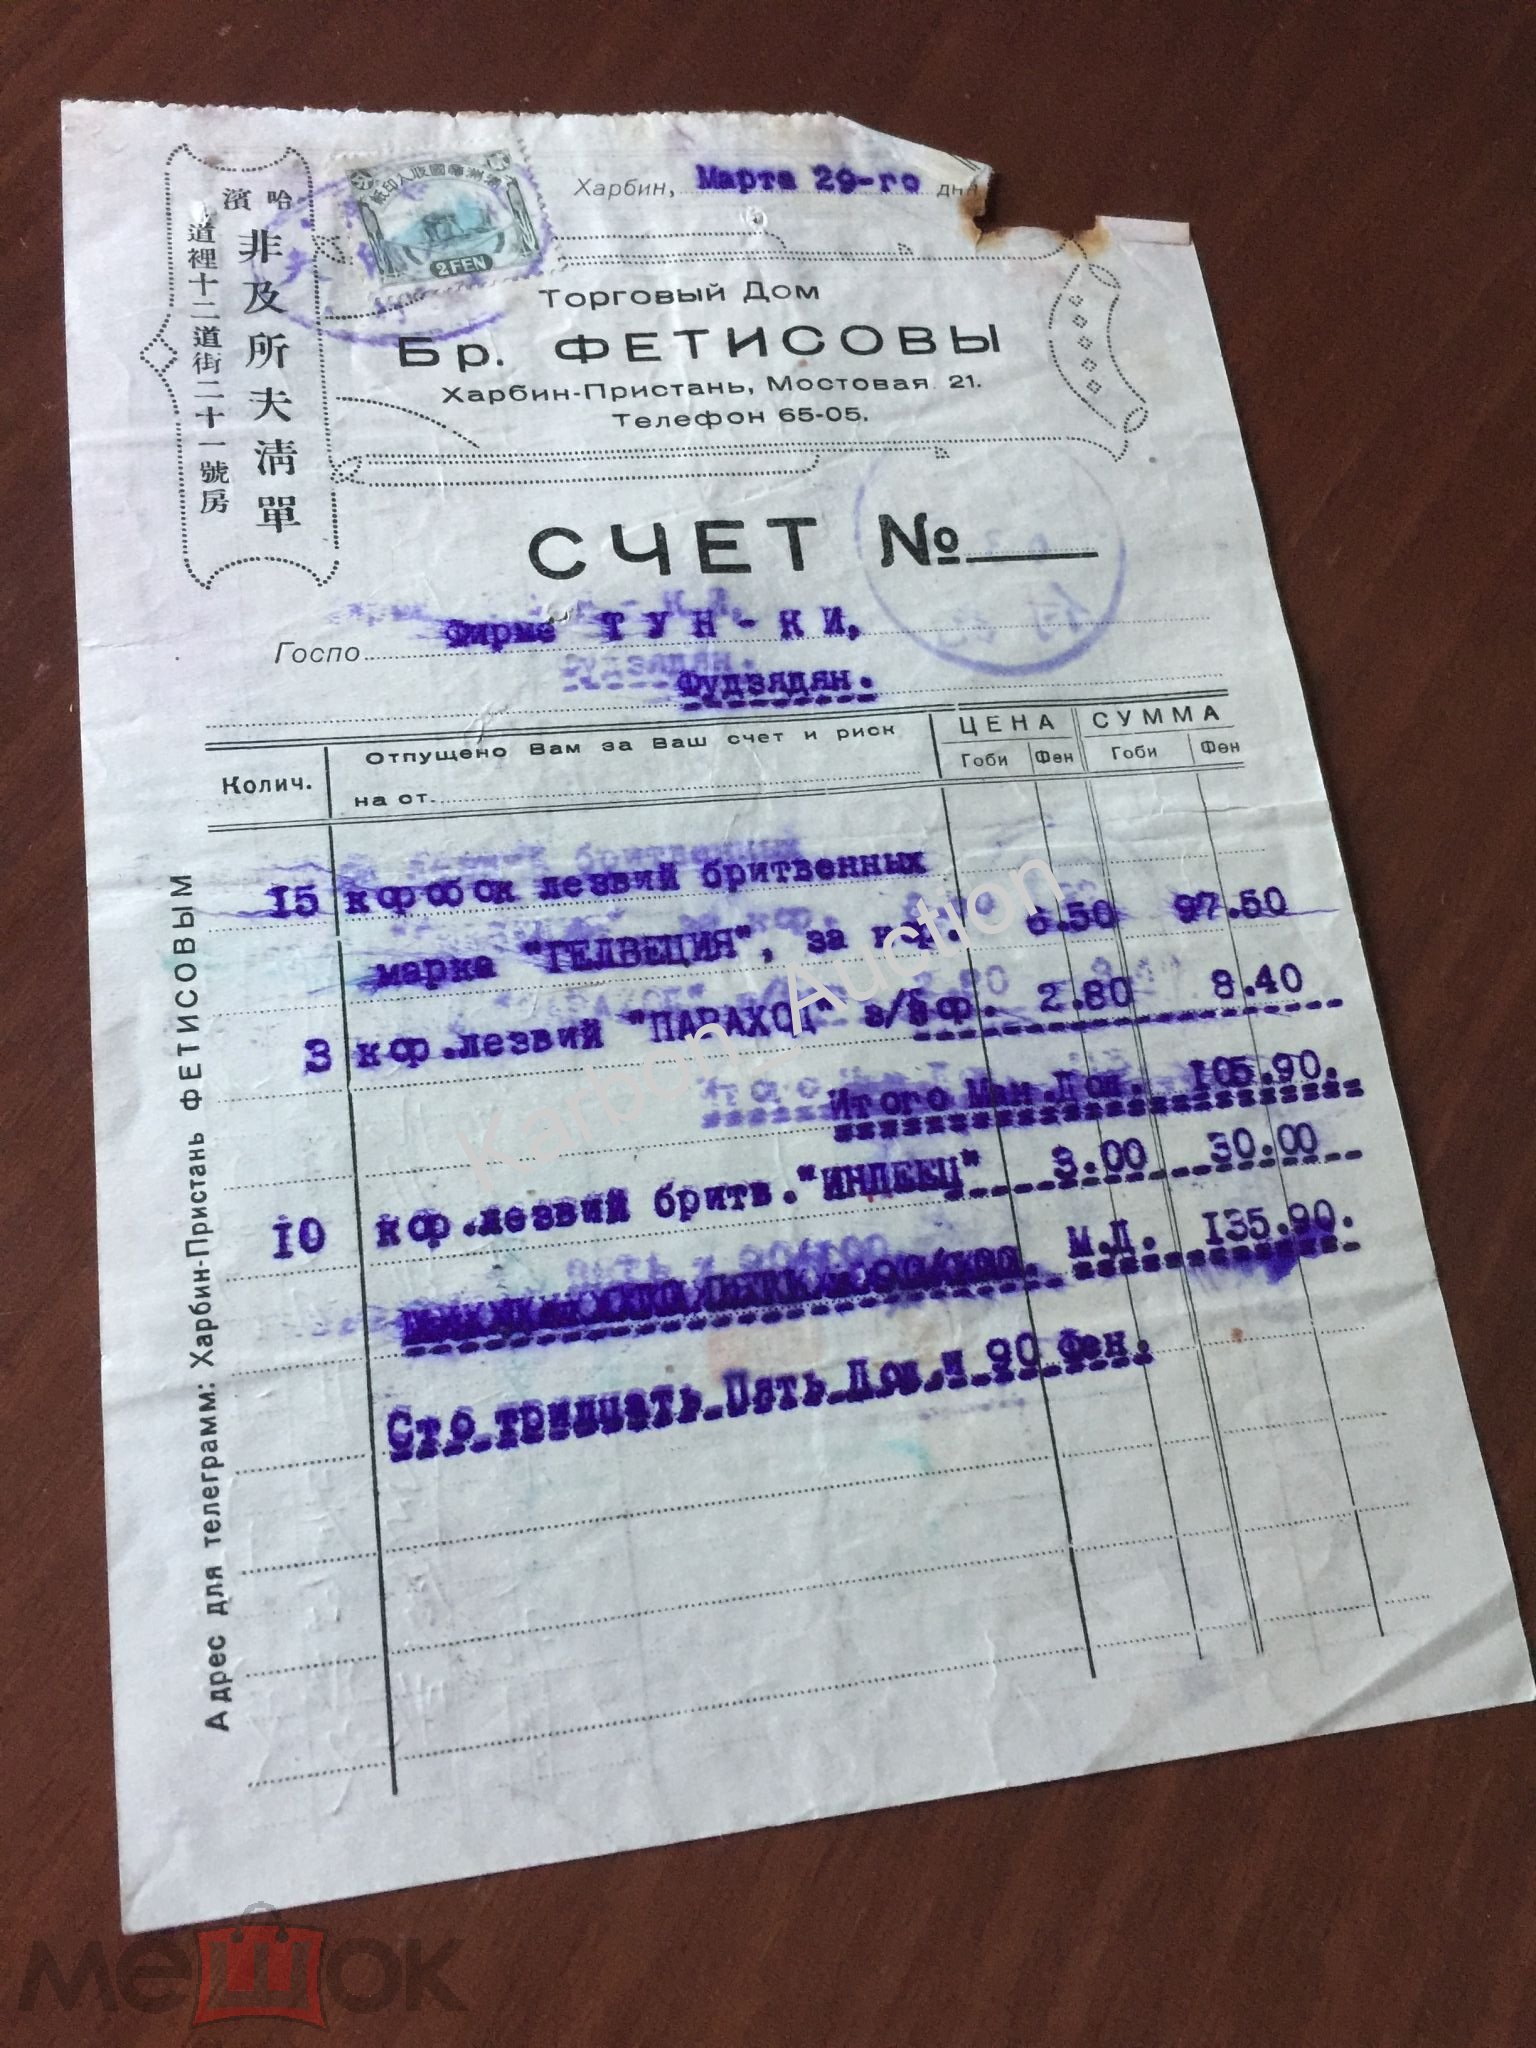 哈濱
非及所夫清單
道裡十二道街二十一號房
滿洲帝國收入印紙
2 FEN
Харбин, Марта 29-го дня
Торговый Дом
Бр. ФЕТИСОВЫ
Харбин-Пристань, Мостовая 21.
Телефон 65-05.
СЧЕТ №
Госпо Фирме ТУН-КИ,
Фудзядян.
Колич. Отпущено Вам за Ваш счет и риск ЦЕНА СУММА
на от Гоби Фен Гоби Фен
15 коробок лезвий бритвенных
марка "ГЕЛВЕЦИЯ", за кор. 6.50 97.50
3 кор.лезвий "ПАРАХОД" з/кор. 2.80 8.40
Итого Ман.Дол. 105.90.
10 кор.лезвий бритв."ИНДЕЕЦ" 3.00 30.00
М.Д. 135.90.
Сто тридцать Пять Дол.и 90 Фен.
Адрес для телеграмм: Харбин-Пристань ФЕТИСОВЫМ
Karbon_Auction
мешок